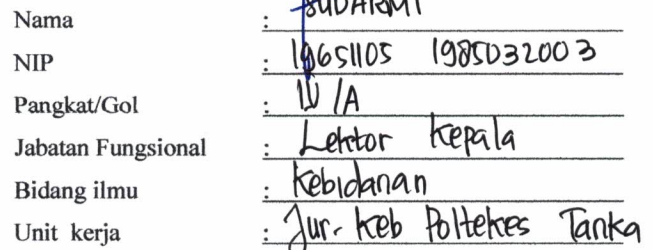 Nama : SUDARMI
NIP : 19651105 1985032003
Pangkat/Gol : IV /A
Jabatan Fungsional : Lektor Kepala
Bidang ilmu : Kebidanan
Unit kerja : Jur. Keb Poltekes Tanka